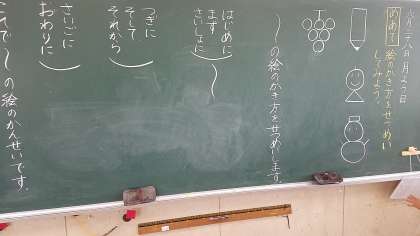 めあて 絵のかき方をせつめい
してみよう。
〜の絵のかき方をせつめいします。
はじめに
まず
さいしょに
つぎに
そして
それから
さいごに
おわりに
これで〜の絵のかんせいです。